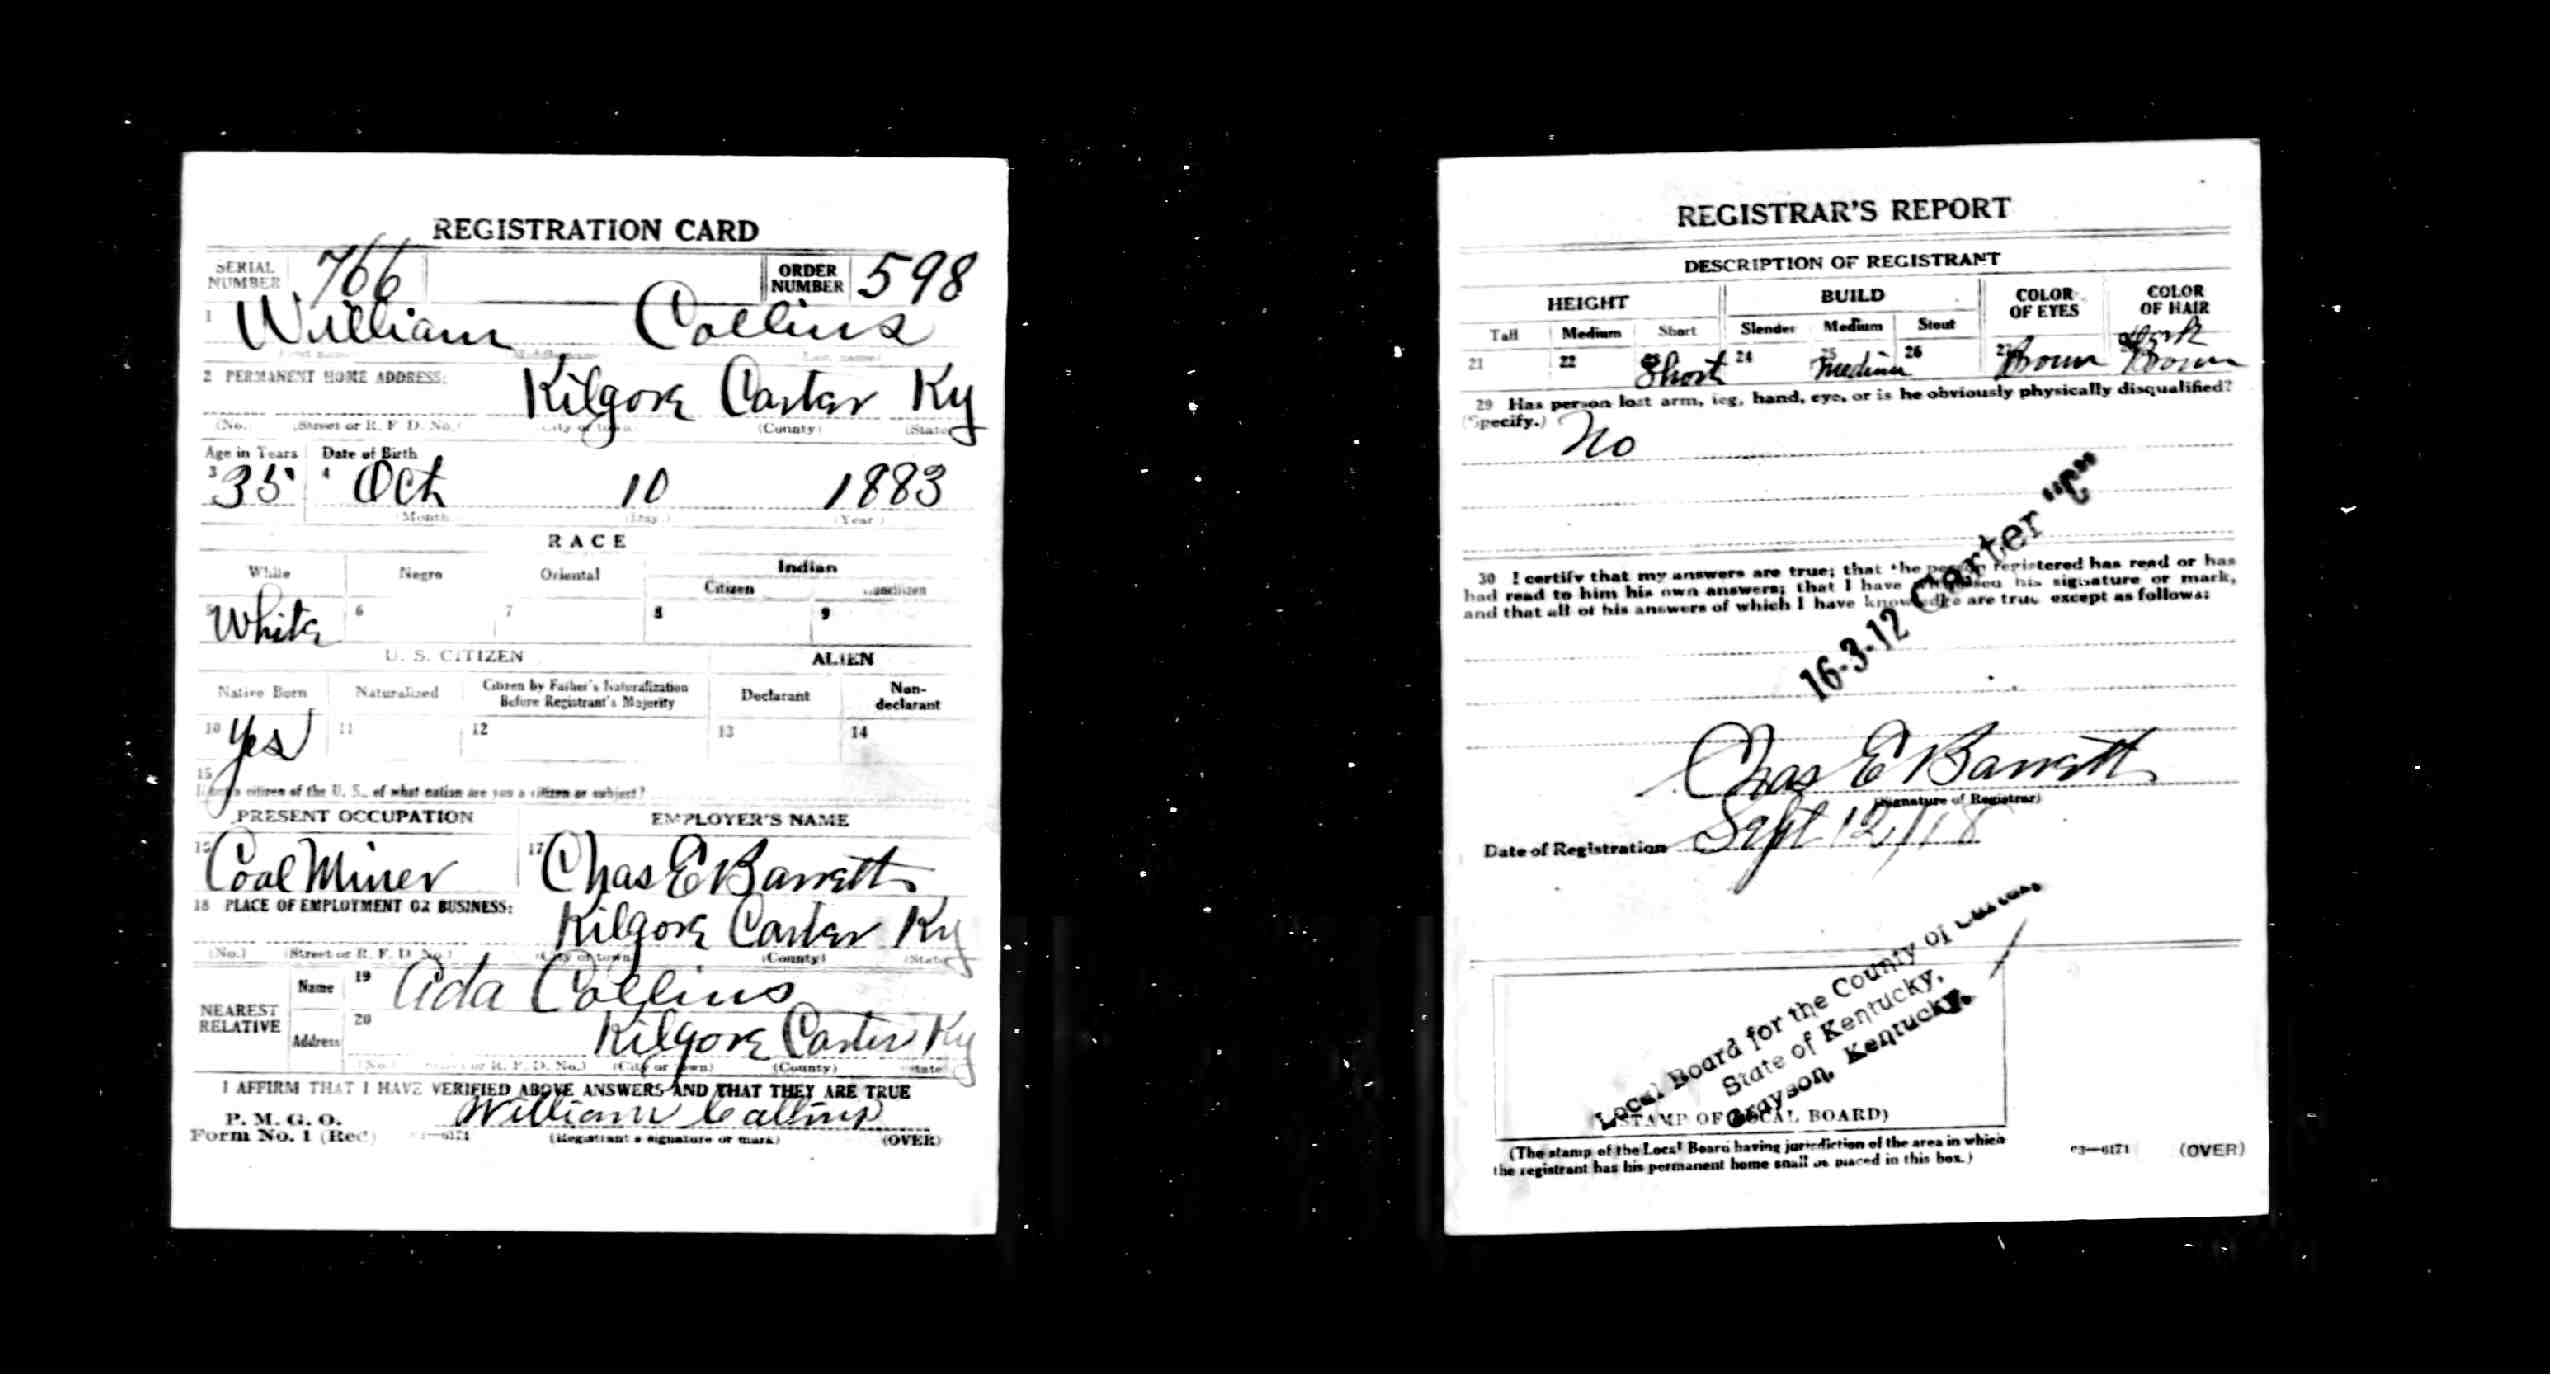 REGISTRATION CARD
SERIAL NUMBER 766 ORDER NUMBER 598
1 William Collins
(First name) (Middle name) (Last name)
2 PERMANENT HOME ADDRESS:
Kilgore Carter Ky
(No.) (Street or R. F. D. No.) (City or town) (County) (State)
Age in Years Date of Birth
3 35 4 Oct 10 1883
(Month) (Day.) (Year)
RACE
White Negro Oriental Indian
Citizen Noncitizen
5 White 6 7 8 9
U. S. CITIZEN ALIEN
Native Born Naturalized Citizen by Father's Naturalization Before Registrant's Majority Declarant Non-declarant
10 Yes 11 12 13 14
15
If not a citizen of the U. S., of what nation are you a citizen or subject?
PRESENT OCCUPATION EMPLOYER'S NAME
16 Coal Miner 17 Chas E Barrett
18 PLACE OF EMPLOYMENT OR BUSINESS:
Kilgore Carter Ky
(No.) (Street or R. F. D. No.) (City or town) (County) (State)
NEAREST RELATIVE Name 19 Ada Collins
Address 20 Kilgore Carter Ky
(No.) (Street or R. F. D. No.) (City or town) (County) (State)
I AFFIRM THAT I HAVE VERIFIED ABOVE ANSWERS AND THAT THEY ARE TRUE
P. M. G. O.
Form No. 1 (Red) 03—6171 William Collins
(Registrant's signature or mark) (OVER)
REGISTRAR'S REPORT
DESCRIPTION OF REGISTRANT
HEIGHT BUILD COLOR OF EYES COLOR OF HAIR
Tall Medium Short Slender Medium Stout
21 22 23 Short 24 25 Medium 26 27 Brown Dark Brown
29 Has person lost arm, leg, hand, eye, or is he obviously physically disqualified?
(Specify.) No
30 I certify that my answers are true; that the person registered has read or has
had read to him his own answers; that I have witnessed his signature or mark,
and that all of his answers of which I have knowledge are true, except as follows:
16-3-12 Carter "C"
Chas E Barrett
(Signature of Registrar)
Date of Registration Sept 12, 118
Local Board for the County of Carter,
State of Kentucky,
Grayson, Kentucky.
(STAMP OF LOCAL BOARD)
(The stamp of the Local Board having jurisdiction of the area in which
the registrant has his permanent home shall be placed in this box.)
03—6171 (OVER)